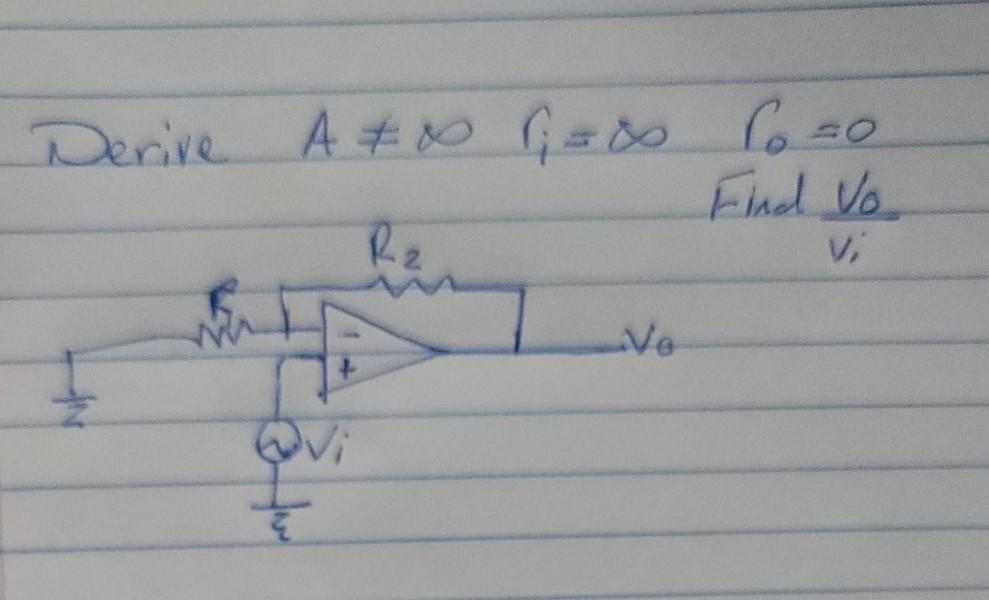 Derive A ≠ ∞ ri = ∞ ro = 0
Find Vo
Vi
R2
R
-
Vo
+
Vi